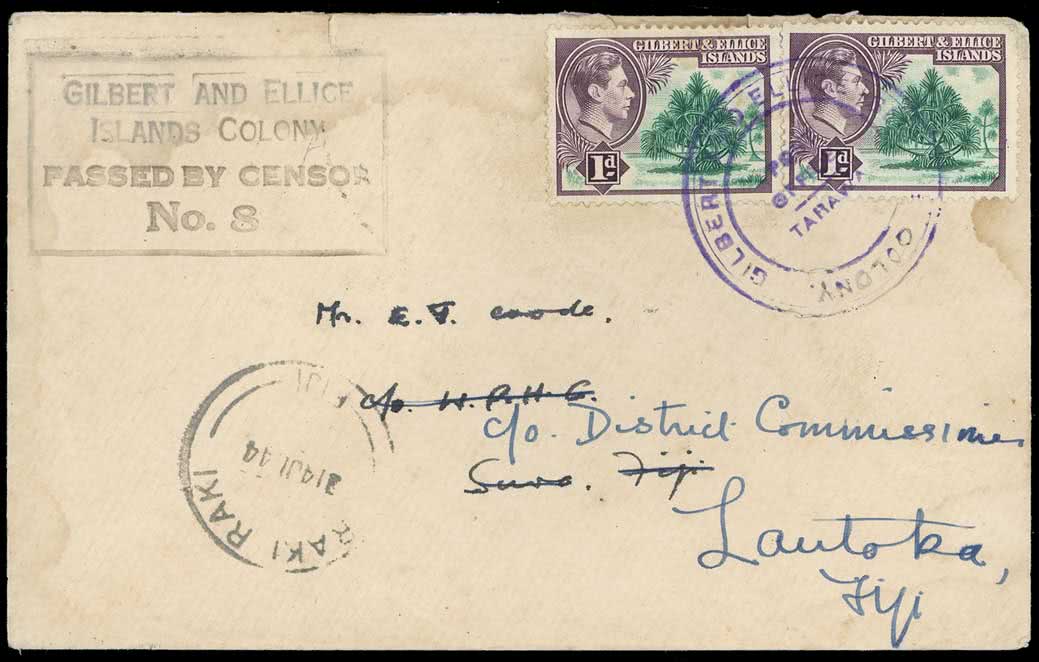 GILBERT AND ELLICE
ISLANDS COLONY
PASSED BY CENSOR
No. 8
GILBERT & ELLICE
ISLANDS
1d
GILBERT & ELLICE
ISLANDS
1d
GILBERT
COLONY.
TARAWA
Mr. E. J. Coode.
c/o. W. P. H. C.
c/o. District Commissioner
Suva. Fiji
Lautoka,
Fiji
RAKI RAKI
JL 44